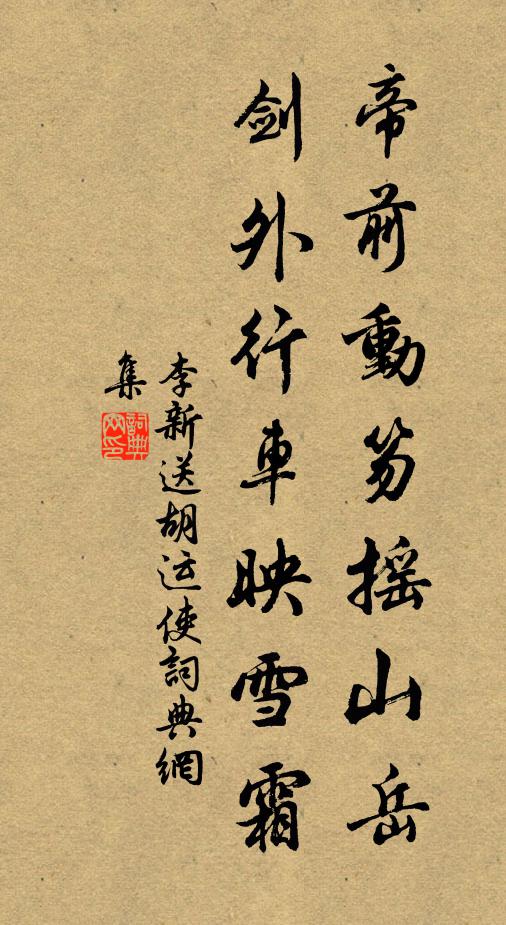 帝前動笏摇山岳
剑外行車映雪霜
李新送胡运使詞典網
集
詞典
网印